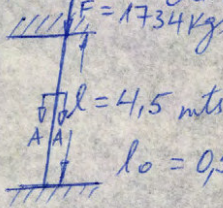 F = 1734 kg
l = 4,5 mts
A A
l₀ = 0,